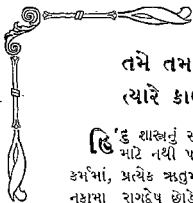 તમે તમ
ત્યારે કા
હિંદુ શાસ્ત્રનું
માટે નથી
કર્મમાં, પ્રત્યેક ઋતુમ
નકામા રાગદ્વેષ છોડે